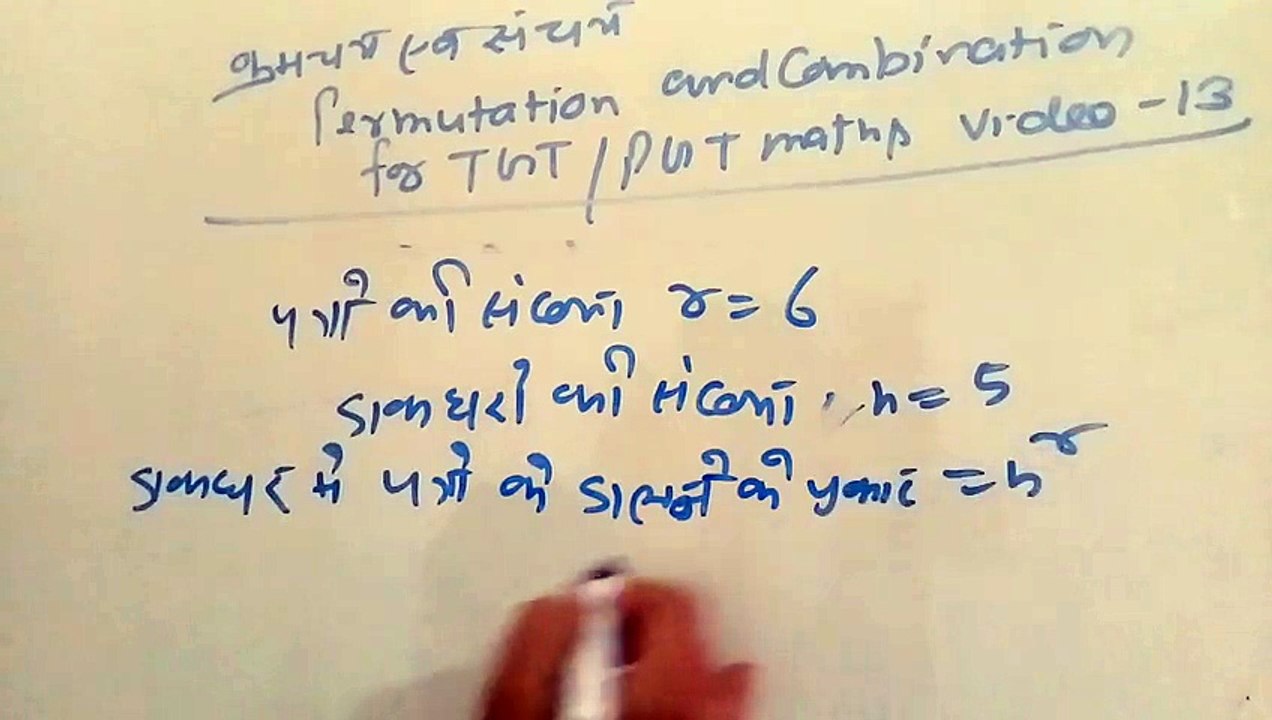 क्रमचय एवं संचय
Permutation and Combination
for TGT / PGT maths video - 13
पत्रों की संख्या r = 6
डाकघरों की संख्या, n = 5
डाकघर में पत्रों के डालने के प्रकार = n^r